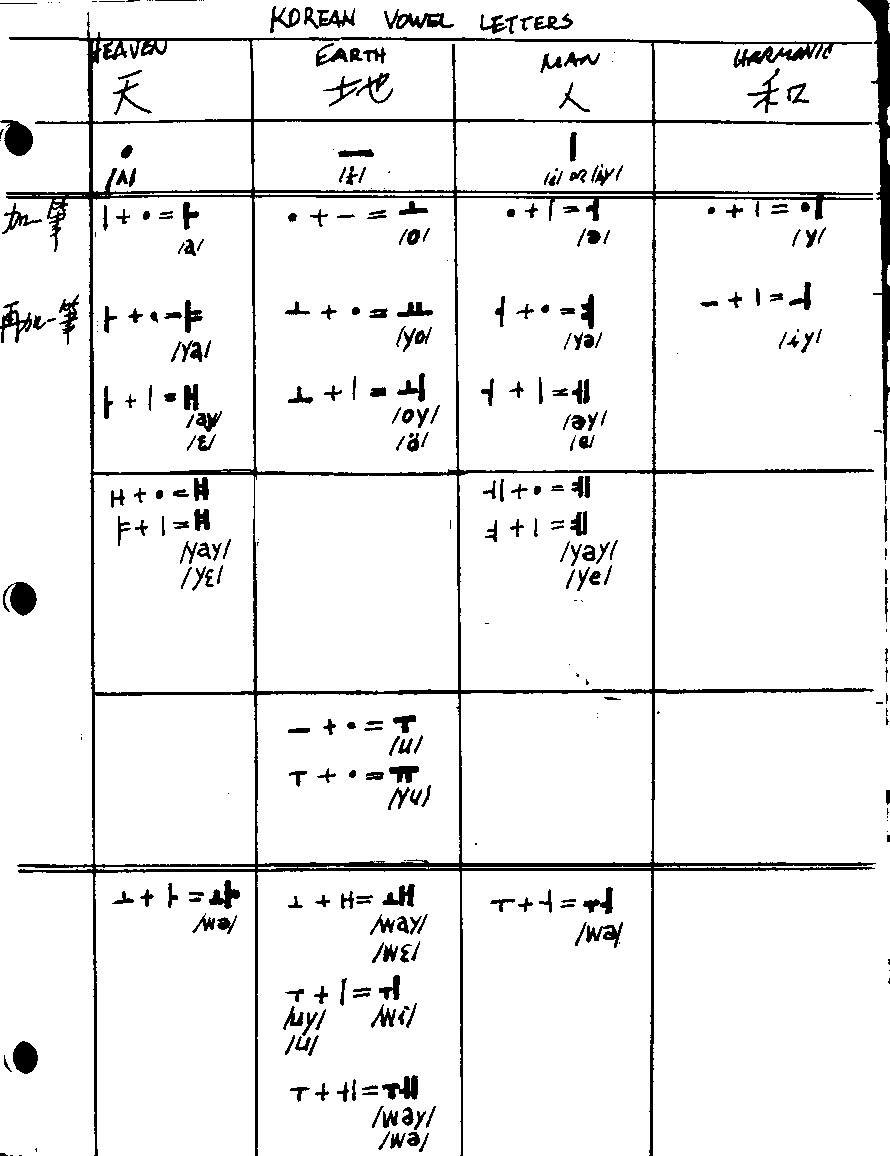 KOREAN VOWEL LETTERS
HEAVEN EARTH MAN HARMONIC
天 地 人 和
• ㅡ ㅣ
/ʌ/ /ɨ/ /i/ or /iy/
加一筆 ㅣ + • = ㅏ • + ㅡ = ㅗ • + ㅣ = ㅓ • + ㅣ = •ㅣ
/a/ /o/ /ə/ /y/
再加一筆 ㅏ + • = ㅑ ㅗ + • = ㅛ ㅓ + • = ㅕ ㅡ + ㅣ = ㅢ
/ya/ /yo/ /yə/ /iy/
ㅏ + ㅣ = ㅐ ㅗ + ㅣ = ㅚ ㅓ + ㅣ = ㅔ
/ay/ /oy/ /əy/
/ɛ/ /ö/ /e/
ㅐ + • = ㅒ ㅔ + • = ㅖ
ㅑ + ㅣ = ㅒ ㅕ + ㅣ = ㅖ
/yay/ /yəy/
/yɛ/ /ye/
ㅡ + • = ㅜ
/u/
ㅜ + • = ㅠ
/yu/
ㅗ + ㅏ = ㅘ ㅗ + ㅐ = ㅙ ㅜ + ㅓ = ㅝ
/wa/ /way/ /wə/
/wɛ/
ㅜ + ㅣ = ㅟ
/uy/ /wi/
/ü/
ㅜ + ㅔ = ㅞ
/wəy/
/wə/